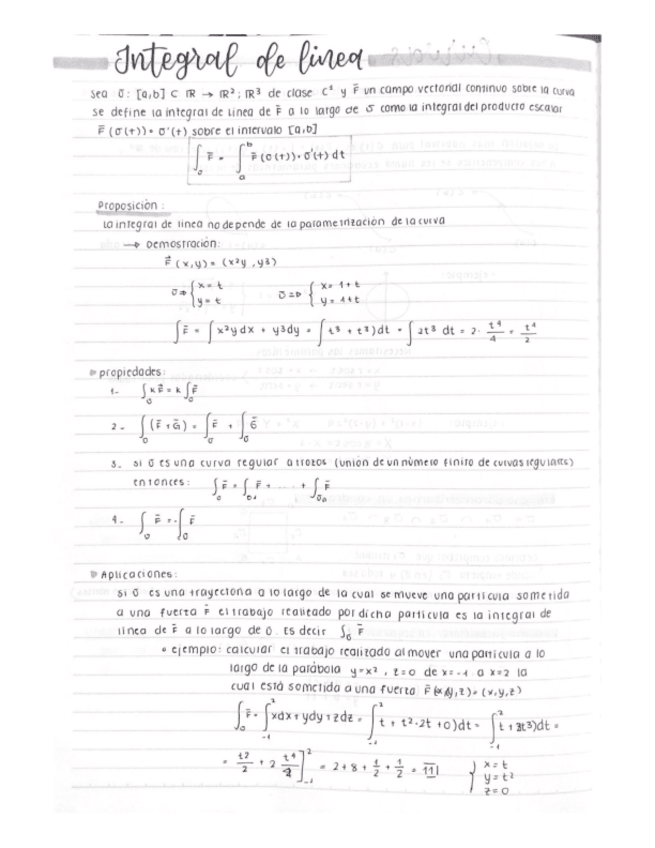 Integral de línea
Sea σ: [a,b] ⊂ ℝ → ℝ²; ℝ³ de clase C¹ y F̄ un campo vectorial continuo sobre la curva
se define la integral de línea de F̄ a lo largo de σ como la integral del producto escalar
F̄(σ(t))·σ'(t) sobre el intervalo [a,b]
∫_σ F̄ = ∫_a^b F̄(σ(t))·σ'(t) dt
Proposición:
la integral de línea no depende de la parametrización de la curva
→ Demostración:
F̄(x,y) = (x²y, y3)
σ ⇒ { x = t σ ⇒ { x = 1+t
y = t y = 1+t
∫F̄ = ∫x²y dx + y3dy = ∫t³ + t³)dt = ∫2t³ dt = 2· t⁴/4 = t⁴/2
propiedades:
1- ∫_σ kF̄ = k ∫_σ F̄
2- ∫_σ (F̄+Ḡ) = ∫_σ F̄ + ∫_σ Ḡ
3- si σ es una curva regular a trozos (unión de un número finito de curvas regulares)
entonces: ∫_σ F̄ = ∫_σ₁ F̄ + ... + ∫_σₙ F̄
4- ∫_σ F̄ = -∫_σ F̄
Aplicaciones:
si σ es una trayectoria a lo largo de la cual se mueve una partícula sometida
a una fuerza F̄ el trabajo realizado por dicha partícula es la integral de
línea de F̄ a lo largo de σ. Es decir ∫_σ F̄
• ejemplo: calcular el trabajo realizado al mover una partícula a lo
largo de la parábola y=x², z=0 de x=-1 a x=2 la
cual está sometida a una fuerza F̄(x,y,z)=(x,y,z)
∫_σ F̄ = ∫_-1^2 xdx + ydy + zdz = ∫_-1^2 t + t²·2t + 0)dt = ∫_-1^2 t + 2t³)dt =
= t²/2 + 2 t⁴/4 ]_-1^2 = 2 + 8 + 1/2 + 1/2 = 11 { x = t
y = t²
z = 0